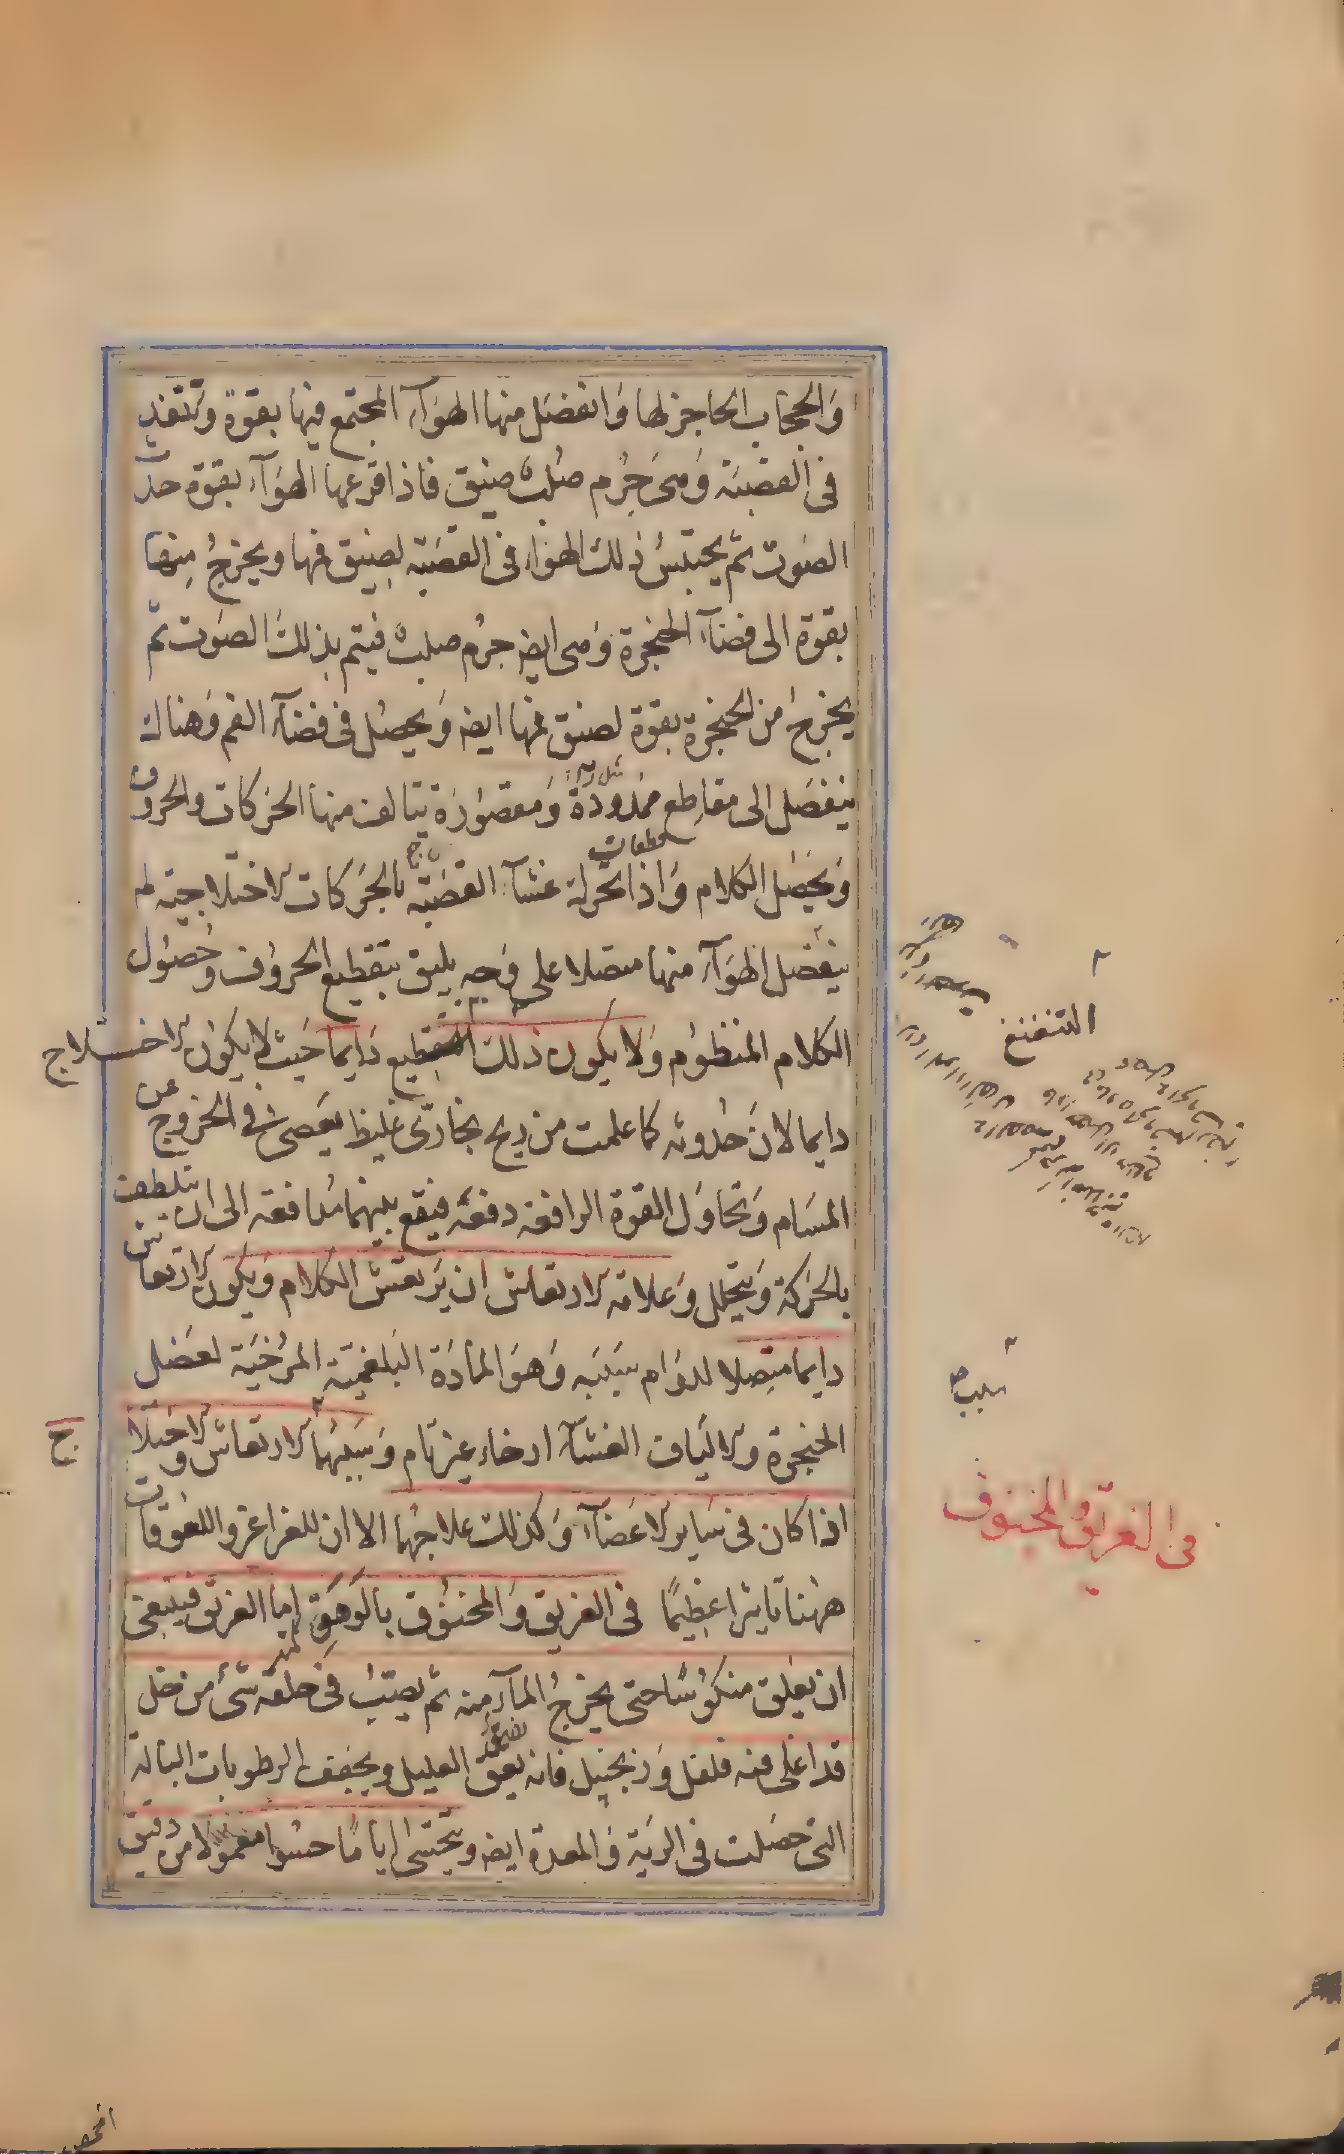 والحجاب الحاجز لها وانفصل منها الهوآء المجتمع فيها بقوة وتنفذ
فى القصبة وهى جرم صلب ضيق فاذا قرعها الهوآء بقوة حدث
الصوت ثم يحتبس ذلك الهواء فى القصبة لضيق فمها ويخرج منها
بقوة الى فضآء الحنجرة وهى ايضه جرم صلب فيتم بذلك الصوت ثم
يخرج من الحنجرة بقوة لضيق فمها ايضه ويحصل فى فضآء الفم وهناك
ينفصل الى مقاطع ممدودة ومقصورة يتالف منها الحركات والحروف
ويحصل الكلام واذا تحرك غشآء القصبة بالحركات الاختلاجية لم
ينفصل الهوآء منها متصلا على وجه يليق بتقطيع الحروف وحصول
الكلام المنظوم ولا يكون ذلك التقطيع دايما حيث لا يكون الاختلاج
دايما لان حدوثه كما علمت من ريح بخارى غليظ يعصى فى الخروج عن
المسام وتحاول القوة الدافعة دفعه فيقع بينهما مدافعة الى ان يتلطف
بالحركة ويتحلل وعلامة الارتعاش ان يرتعش الكلام ويكون الارتعاش
دايما متصلا لدوام سببه وهو المادة البلغمية المرخية لعضل
الحنجرة والياف الغشآء ارخاء غير تام وسببهما الارتعاش والاختلا
ج
اذا كان فى ساير الاعضآء وكذلك علاجهما الا ان للغراغر واللعوقات
ههنا تاثيرا عظيمًا فى الغريق والمخنوق بالوهق اما الغريق فينبغى
ان يعلق منكوسًا حتى يخرج المآء منه ثم يصب فى حلقه شئ من خل
قد اغلى فيه فلفل وزنجبيل فانه يعو العليل ويجفف الرطوبات البالة
التى حصلت فى الرية والمعدة ايضه ويتحسى اياما حسوا معمولا من دقيق
التنغنغ
فى الغريق والمخنوق